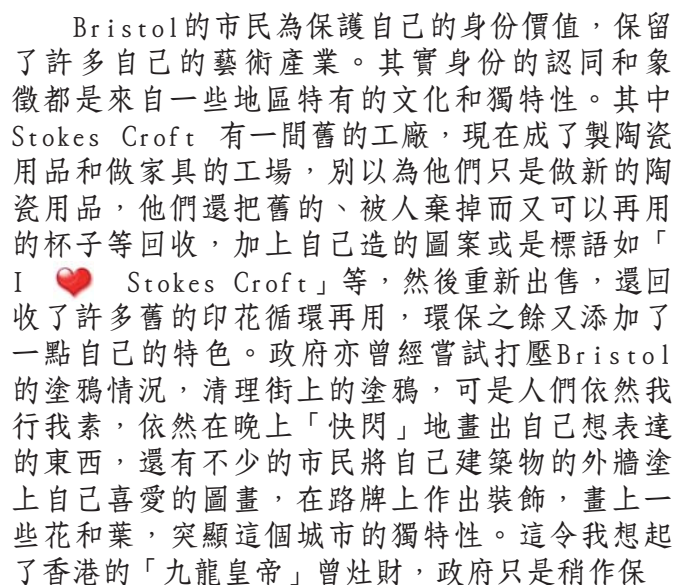 Bristol的市民為保護自己的身份價值，保留
了許多自己的藝術產業。其實身份的認同和象
徵都是來自一些地區特有的文化和獨特性。其中
Stokes Croft 有一間舊的工廠，現在成了製陶瓷
用品和做家具的工場，別以為他們只是做新的陶
瓷用品，他們還把舊的、被人棄掉而又可以再用
的杯子等回收，加上自己造的圖案或是標語如「
I ❤ Stokes Croft」等，然後重新出售，還回
收了許多舊的印花循環再用，環保之餘又添加了
一點自己的特色。政府亦曾經嘗試打壓Bristol
的塗鴉情況，清理街上的塗鴉，可是人們依然我
行我素，依然在晚上「快閃」地畫出自己想表達
的東西，還有不少的市民將自己建築物的外牆塗
上自己喜愛的圖畫，在路牌上作出裝飾，畫上一
些花和葉，突顯這個城市的獨特性。這令我想起
了香港的「九龍皇帝」曾灶財，政府只是稍作保